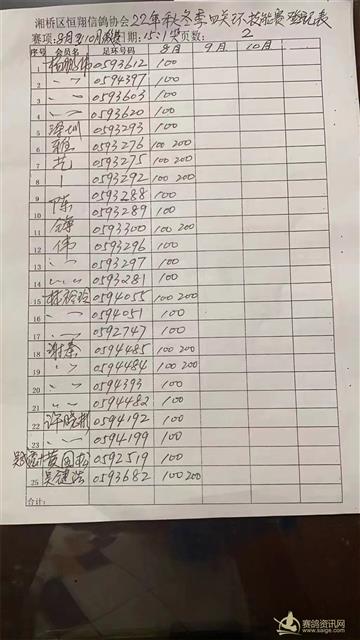 湘桥区恒翔信鸽协会22年秋冬季四关环技能赛登记表
赛项: 8月至10月 日期: 15:1 页数: 2
序号 会员名 足环号码 8月 9月 10月
1 0593612 100
2 0594397 100
3 0593603 100
4 0593620 100
5 深圳 0593293 100
6 雅 0593276 100 200
7 艺 0593275 100 200
8 0593292 100 200
9 陈 0593288 100
10 0593289 100
11 海 0593300 100 200
12 伟 0593296 100
13 0593297 100
14 0593281 100
15 0594055 100 200
16 0594051 100
17 0592747 100
18 谢素 0594485 100 200
19 0594484 100 200
20 0594393 100
21 0594482 100
22 许晓彬 0594192 100
23 0594199 100
24 0592519 100
25 吴健浩 0593682 100 200
合计:
赛鸽资讯网
www.saige.com